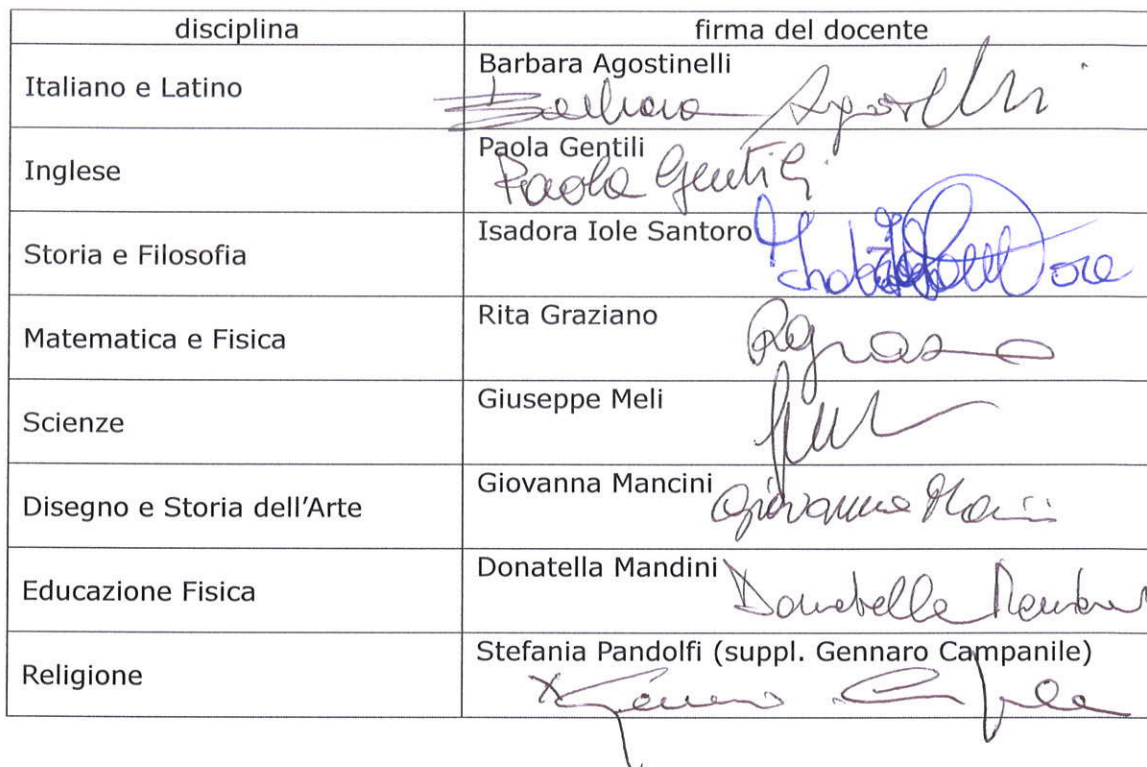 disciplina firma del docente
Italiano e Latino Barbara Agostinelli
Barbara Agostinelli
Inglese Paola Gentili
Paola Gentili
Storia e Filosofia Isadora Iole Santoro
Matematica e Fisica Rita Graziano
Scienze Giuseppe Meli
Disegno e Storia dell'Arte Giovanna Mancini
Giovanna Mancini
Educazione Fisica Donatella Mandini
Donatella Mandini
Religione Stefania Pandolfi (suppl. Gennaro Campanile)